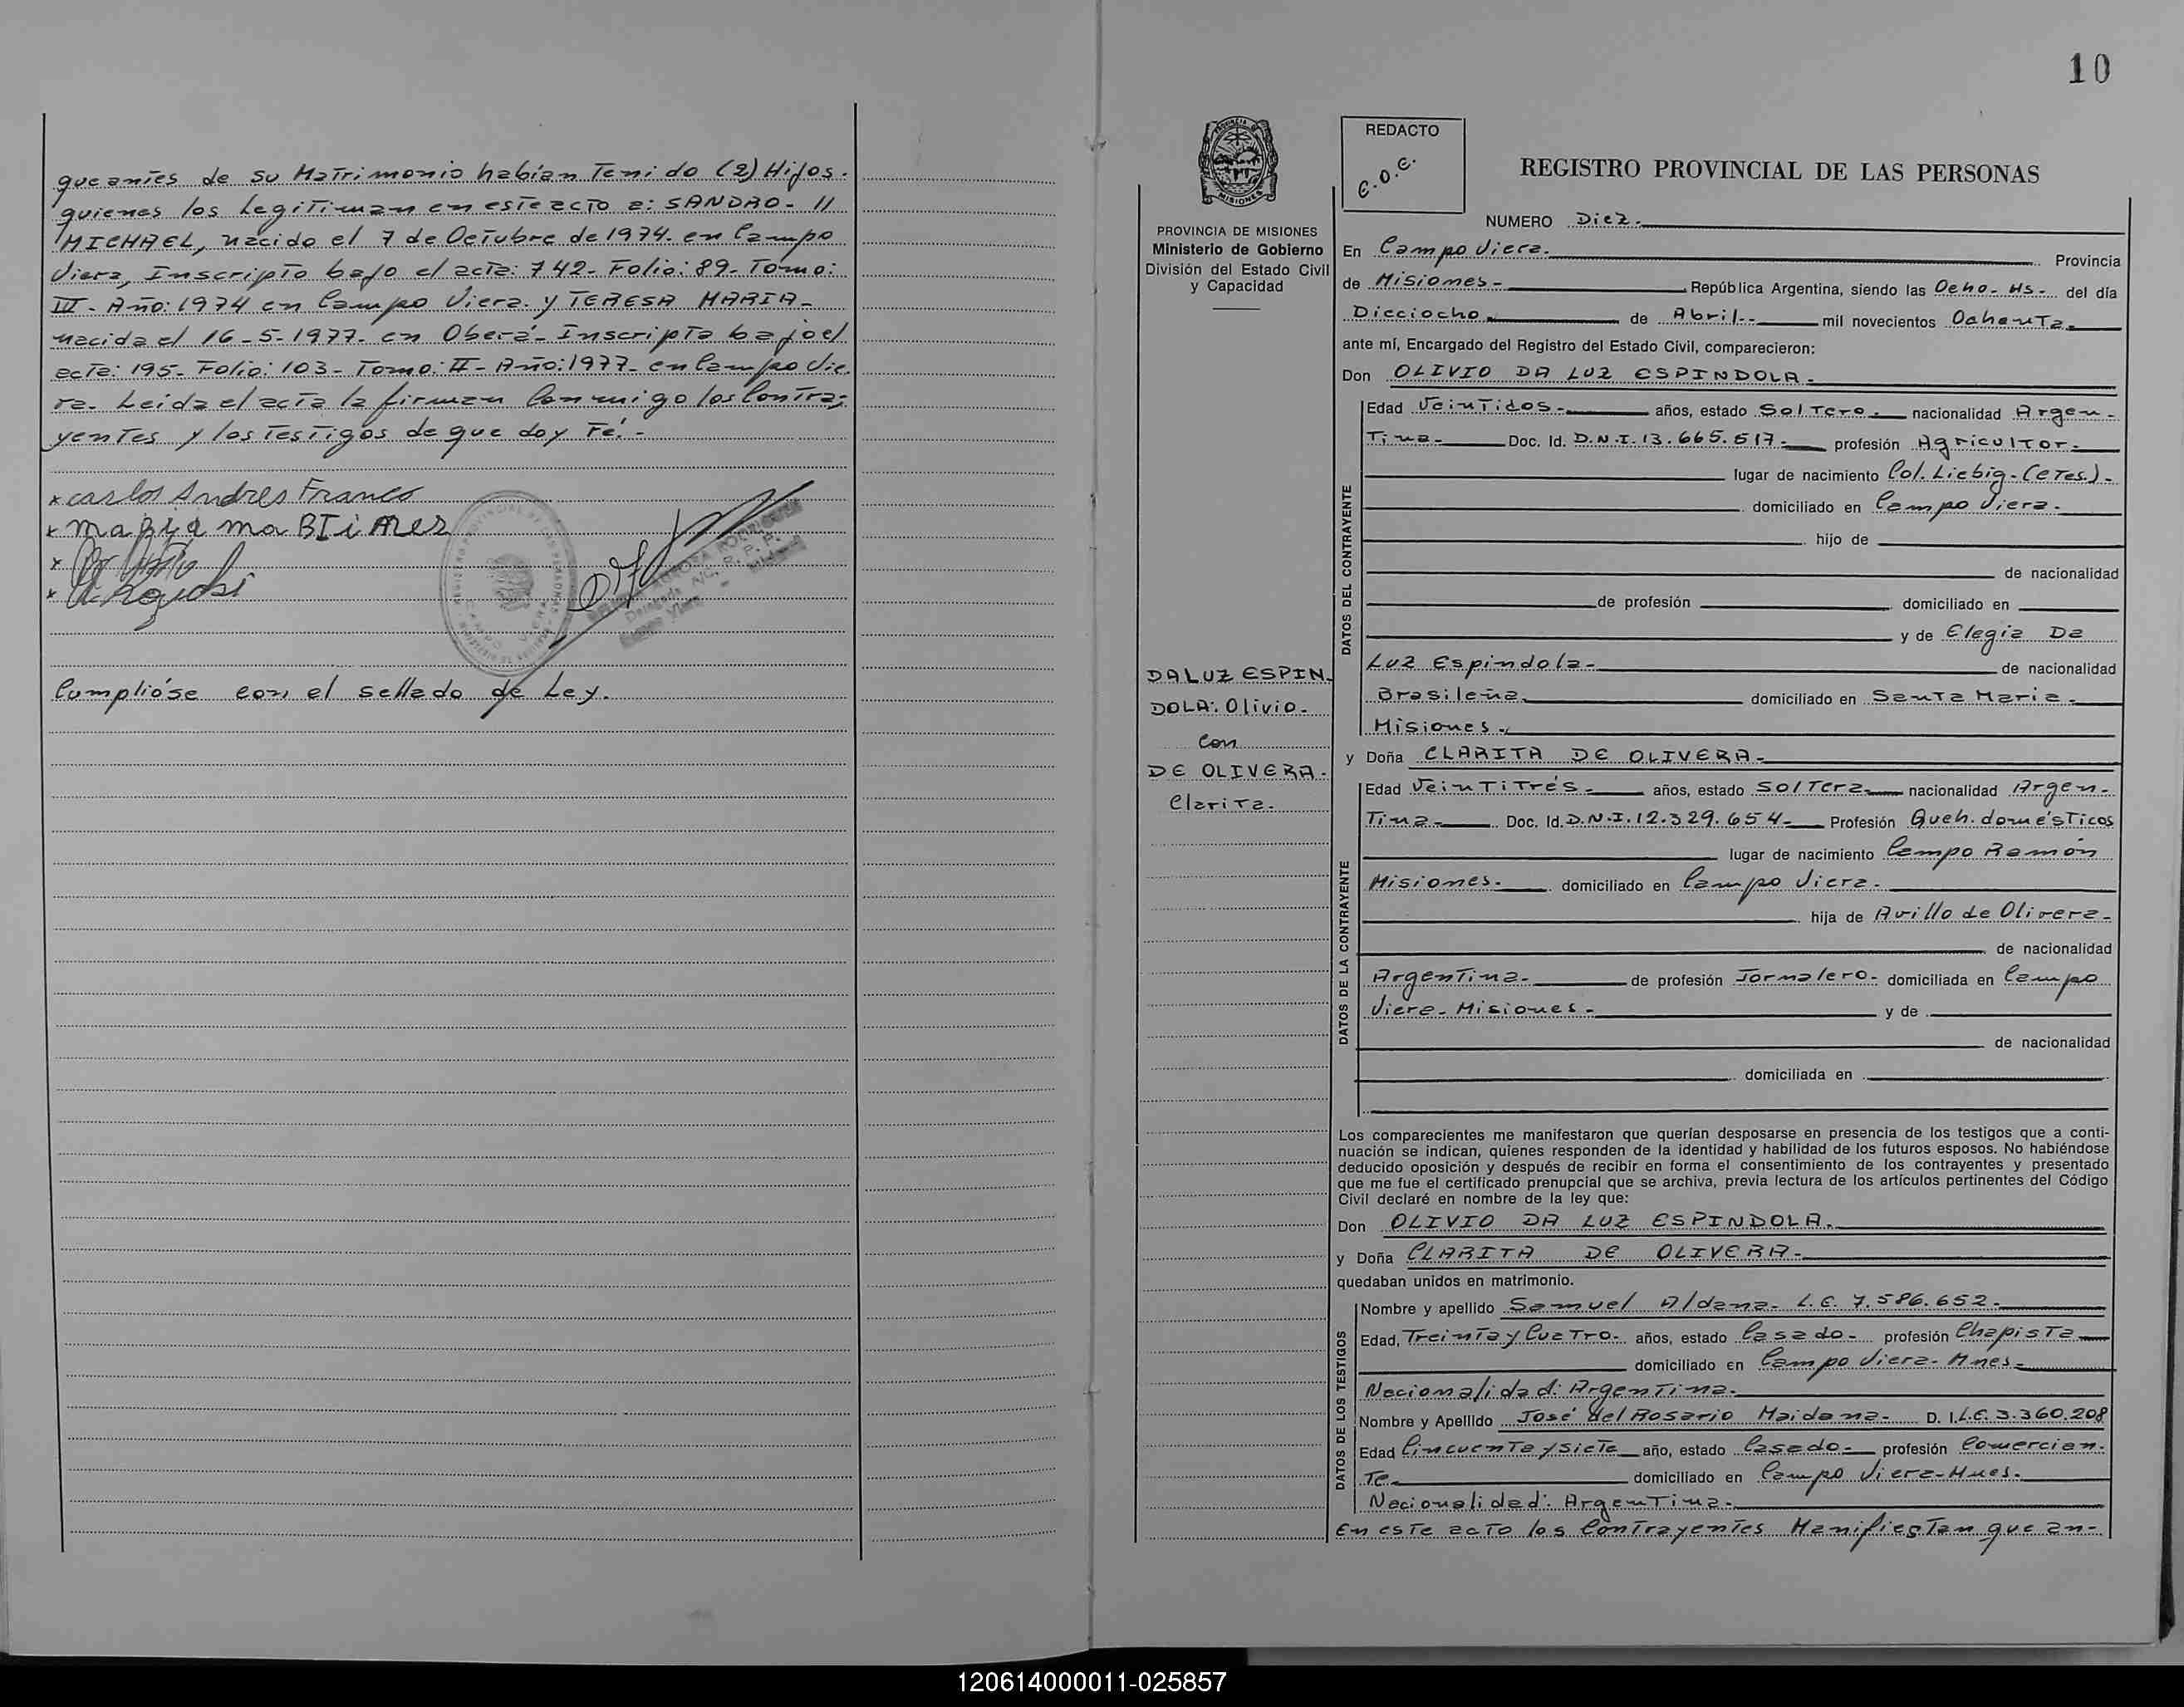 que antes de su Matrimonio habían Tenido (2) Hijos.
quienes los Legitiman en este acto a: SANDRO - //
MICHAEL, nacido el 7 de Octubre de 1974. en Campo
Viera, Inscripto bajo el acta: 742 - Folio: 89 - Tomo:
III - Año: 1974 en Campo Viera. y TERESA MARIA -
nacida el 16-5-1977. en Oberá - Inscripta bajo el
acta: 195 - Folio: 103 - Tomo: II - Año: 1977 - en Campo Vie.
ra. Leida el acta la firman Conmigo los Contra;
yentes y los testigos de que doy Fé. -
x carlos Andres Franco
x maria maRTiMez
x
x
Cumplióse con el sellado de Ley.
10
REDACTO
E.O.E.
REGISTRO PROVINCIAL DE LAS PERSONAS
PROVINCIA DE MISIONES
Ministerio de Gobierno
División del Estado Civil
y Capacidad
DA LUZ ESPIN-
DOLA: Olivio-
Con
DE OLIVERA.
Clarita.
NUMERO Diez.
En Campo Viera. Provincia
de Misiones - República Argentina, siendo las Ocho - Hs - del día
Dieciocho. de Abril - mil novecientos Ochenta.
ante mí, Encargado del Registro del Estado Civil, comparecieron:
Don OLIVIO DA LUZ ESPINDOLA.
DATOS DEL CONTRAYENTE
Edad Veintidos. años, estado Soltero. nacionalidad Argen-
Tina- Doc. Id. D.N.I. 13.665.517. profesión Agricultor-
lugar de nacimiento Col. Liebig - (CTes.) -
domiciliado en Campo Viera.
hijo de
de nacionalidad
de profesión domiciliado en
y de Elegia Da
Luz Espindola- de nacionalidad
Brasileña. domiciliado en Santa Maria-
Misiones.
y Doña CLARITA DE OLIVERA-
DATOS DE LA CONTRAYENTE
Edad Veintitrés. años, estado Soltera nacionalidad Argen-
Tina- Doc. Id. D.N.I. 12.329.654- Profesión Queh. domésticos
lugar de nacimiento Campo Ramón
Misiones- domiciliado en Campo Viera.
hija de Avillo de Olivera-
de nacionalidad
Argentina- de profesión Jornalero- domiciliada en Campo
Viera- Misiones- y de
de nacionalidad
domiciliada en
Los comparecientes me manifestaron que querían desposarse en presencia de los testigos que a conti-
nuación se indican, quienes responden de la identidad y habilidad de los futuros esposos. No habiéndose
deducido oposición y después de recibir en forma el consentimiento de los contrayentes y presentado
que me fue el certificado prenupcial que se archiva, previa lectura de los artículos pertinentes del Código
Civil declaré en nombre de la ley que:
Don OLIVIO DA LUZ ESPINDOLA.
y Doña CLARITA DE OLIVERA-
quedaban unidos en matrimonio.
DATOS DE LOS TESTIGOS
Nombre y apellido Samuel Aldana- L.E. 7.586.652.
Edad, Treinta y Cuatro- años, estado Casado- profesión Chapista
domiciliado en Campo Viera- Mnes-
Nacionalidad: Argentina.
Nombre y Apellido José del Rosario Maidana- D. I. L.E. 3.360.208
Edad Cincuenta y siete año, estado Casado- profesión Comercian-
Te domiciliado en Campo Viera- Mnes.
Nacionalidad: Argentina.
En este acto los Contrayentes Manifiestan que an-
120614000011-025857